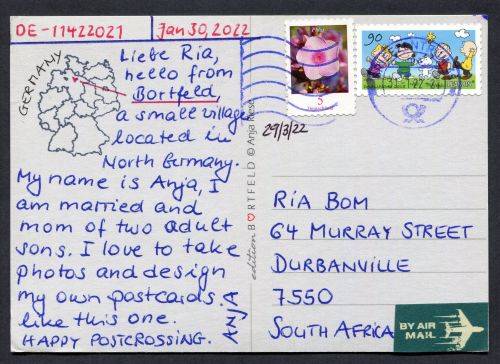 DE-11422021
Jan 30, 2022
GERMANY
Liebe Ria,
hello from
Bortfeld,
a small village
located in
North Germany.
My name is Anja, I
am married and
mom of two adult
sons. I love to take
photos and design
my own postcards
like this one.
HAPPY POSTCROSSING. ANJA
edition BORTFELD © Anja
5
90
29/3/22
RIA BOM
64 MURRAY STREET
DURBANVILLE
7550
SOUTH AFRICA
BY AIR
MAIL